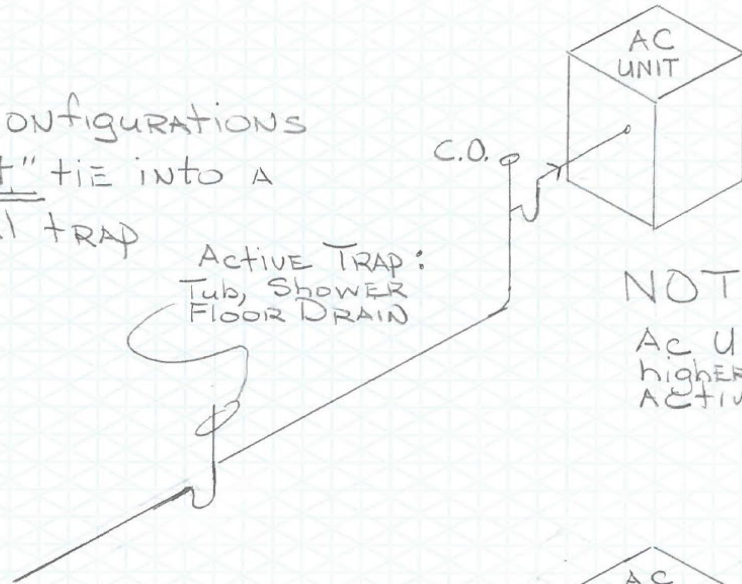 ONFIGURATIONS
TIE INTO A
TRAP
AC
UNIT
C.O.
ACTIVE TRAP:
Tub, Shower
Floor Drain
NOT
AC U
higher
ACTIV
AC